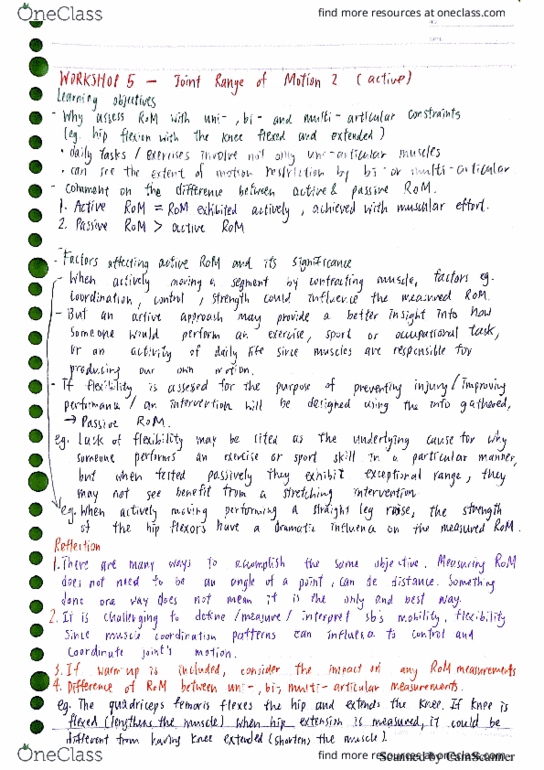 OneClass
find more resources at oneclass.com
WORKSHOP 5 - Joint Range of Motion 2 (active)
Learning objectives
- Why assess RoM with uni-, bi- and multi-articular constraints
(eg. hip flexion with the knee flexed and extended)
• daily tasks / exercises involve not only uni-articular muscles
• can see the extent of motion restriction by bi- or multi-articular
- comment on the difference between active & passive RoM.
1. Active RoM = RoM exhibited actively, achieved with muscular effort.
2. Passive RoM > active RoM
- Factors affecting active RoM and its significance
- When actively moving a segment by contracting muscle, factors eg.
coordination, control, strength could influence the measured RoM.
- But an active approach may provide a better insight into how
someone would perform an exercise, sport or occupational task,
or an activity of daily life since muscles are responsible for
producing our own motion.
- If flexibility is assessed for the purpose of preventing injury / improving
performance / an intervention will be designed using the info gathered,
→ Passive RoM.
eg. Lack of flexibility may be cited as the underlying cause for why
someone performs an exercise or sport skill in a particular manner,
but when tested passively they exhibit exceptional range, they
may not see benefit from a stretching intervention
eg. When actively moving performing a straight leg raise, the strength
of the hip flexors have a dramatic influence on the measured RoM.
Reflection
1. There are many ways to accomplish the same objective. Measuring RoM
does not need to be an angle of a point, can be distance. Something
done one way does not mean it is the only and best way.
2. It is challenging to define / measure / interpret sb's mobility, flexibility
since muscle coordination patterns can influence to control and
coordinate joint's motion.
3. If warm-up is included, consider the impact on any RoM measurements
4. Difference of RoM between uni-, bi-, multi-articular measurements.
eg. The quadriceps femoris flexes the hip and extends the knee. If knee is
flexed (lengthens the muscle) when hip extension is measured, it could be
different from having knee extended (shortens the muscle).
OneClass
find more resources at oneclass.com
Scanned by CamScanner